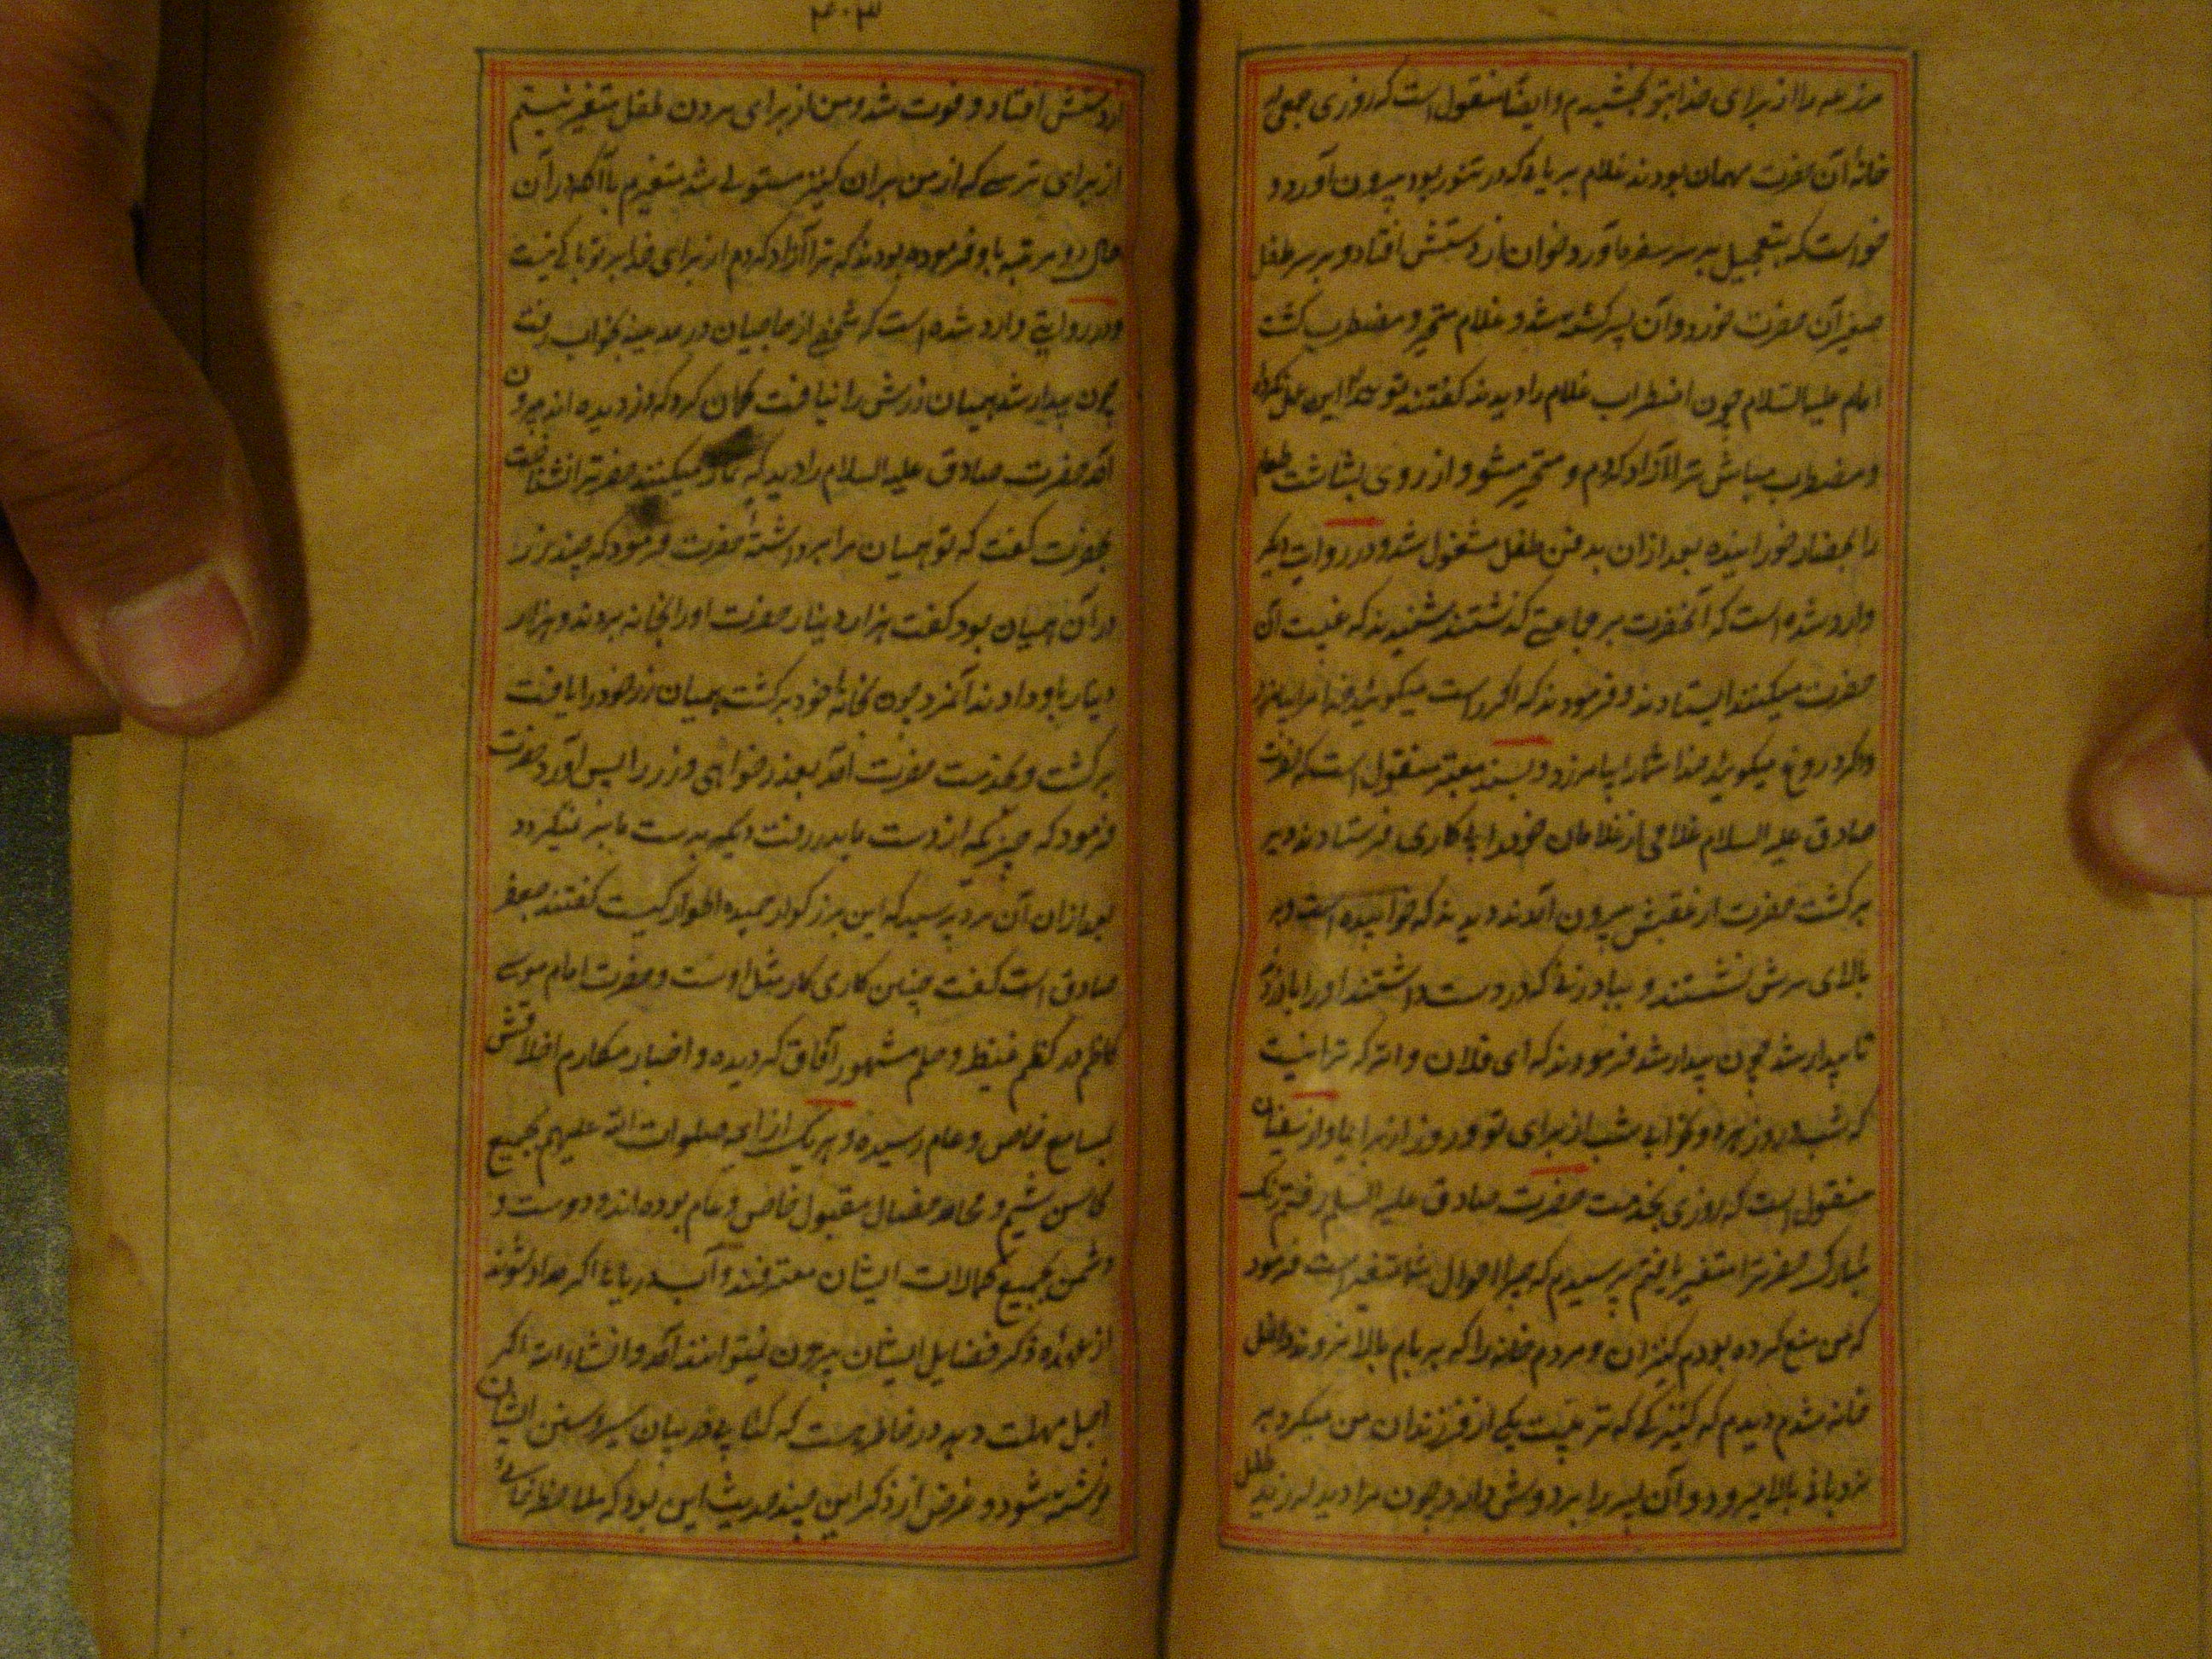 مزرعه را از برای خدا بتو بخشیدم و ایضا منقول است که روزی جمعی در
خانهٔ آن حضرت مهمان بودند غلام بریانی که در تنور بود بیرون آورد و
خواست که بتعجیل بر سر سفره آورد و خوان از دستش افتاد و بر سر طفل
صغیر آن حضرت خورد و آن پسر کشته شد و غلام متحیر و مضطرب کشت
امام علیه السلام چون اضطراب غلام را دیدند کفتند تو بعمدا این عمل نکردی
و مضطرب مباش ترا آزاد کردم و متحیر مشو و از روی بشاشت طعام
را بحضار خورانیده بعد از ان بدفن طفل مشغول شد و در روایت دیکر
وارد شده است که آنحضرت بر جماعتی کذشتند شنیدند که غیبت آن
حضرت میکنند ایستادند و فرمودند که اکر راست میکوئید خدا مرا بیامرزد
و اکر دروغ میکوئید خدا شما را بیامرزد و بسند معتبر منقول است که حضرت
صادق علیه السلام غلامی از غلامان خود را پی کاری فرستادند دیر
برکشت حضرت از عقبش بیرون آمدند دیدند که خوابیده است بر
بالای سرش نشستند و ببادزنی که در دست داشتند او را باد زدند
تا بیدار شد چون بیدار شد فرمودند که ای فلان والله که ترا نیست
که شب و روز هر دو بخوابی شب از برای تو و روز از برای ما و از سفیان
منقول است که روزی بخدمت حضرت صادق علیه السلام رفتم رنک
مبارک حضرت را متغیر یافتم پرسیدم که چرا احوال شما متغیر است فرمود
که من منع کرده بودم کنیزان و مردم خانه را که بر بام بالا نروند داخل
خانه شدم دیدم که کنیزکی که تربیت یکی از فرزندان من میکرد بر
نردبانی بالا میرود و آن پسر را بر دوش دارد چون مرا دید لرزید طفل
۴۰۳
از دستش افتاد و فوت شد و من از برای مردن طفل متغیر نیستم
از برای ترسی که از من بر ان کنیز مستولی شد متغیرم با آنکه در آن
حال دو مرتبه باو فرموده بودند که ترا آزاد کردم از برای خدا بر تو باکی نیست
و در روایتی وارد شده است که شخصی از حاجیان در مدینه بخواب رفت
چون بیدار شد همیان زرش را نیافت کمان کرد که دزدیده اند بیرون
آمد حضرت صادق علیه السلام را دید که نماز میکنند حضرت را نشناخت
بحضرت کفت که تو همیان مرا برداشتهٔ حضرت فرمود که چند زر
در آن همیان بود کفت هزار دینار حضرت او را بخانه بردند و هزار
دینار باو دادند آنمرد چون بخانهٔ خود برکشت همیان زر خود را یافت
برکشت و بخدمت حضرت آمد بعذر خواهی و زر را پس آورد حضرت
فرمود که چیزیکه از دست ما بدر رفت دیکر بدست ما بر نمیکردد
بعد از ان آن مرد پرسید که این بزرکوار حمیده اطوار کیست کفتند جعفر
صادق است کفت چنین کاری کار مثل اوست و حضرت امام موسی
کاظم در کظم غیظ و حلم مشهور آفاق کردیده و اخبار مکارم اخلاقش
بمسامع خاص و عام رسیده و هر یک از ایمه صلوات الله علیهم بجمیع
محاسن شیم و محامد خصال مقبول خاص و عام بوده اند و دوست و
دشمن بجمیع کمالات ایشان معترفند و آب دریاها اکر مداد شوند
از عهده ذکر فضایل ایشان بیرون نمیتوانند آمد و انشاء الله اکر
اجل مهلت دهد در خاطر هست که کتابی در بیان سیر و سنن ایشان
نوشته شود و غرض از ذکر این چند حدیث این بود که